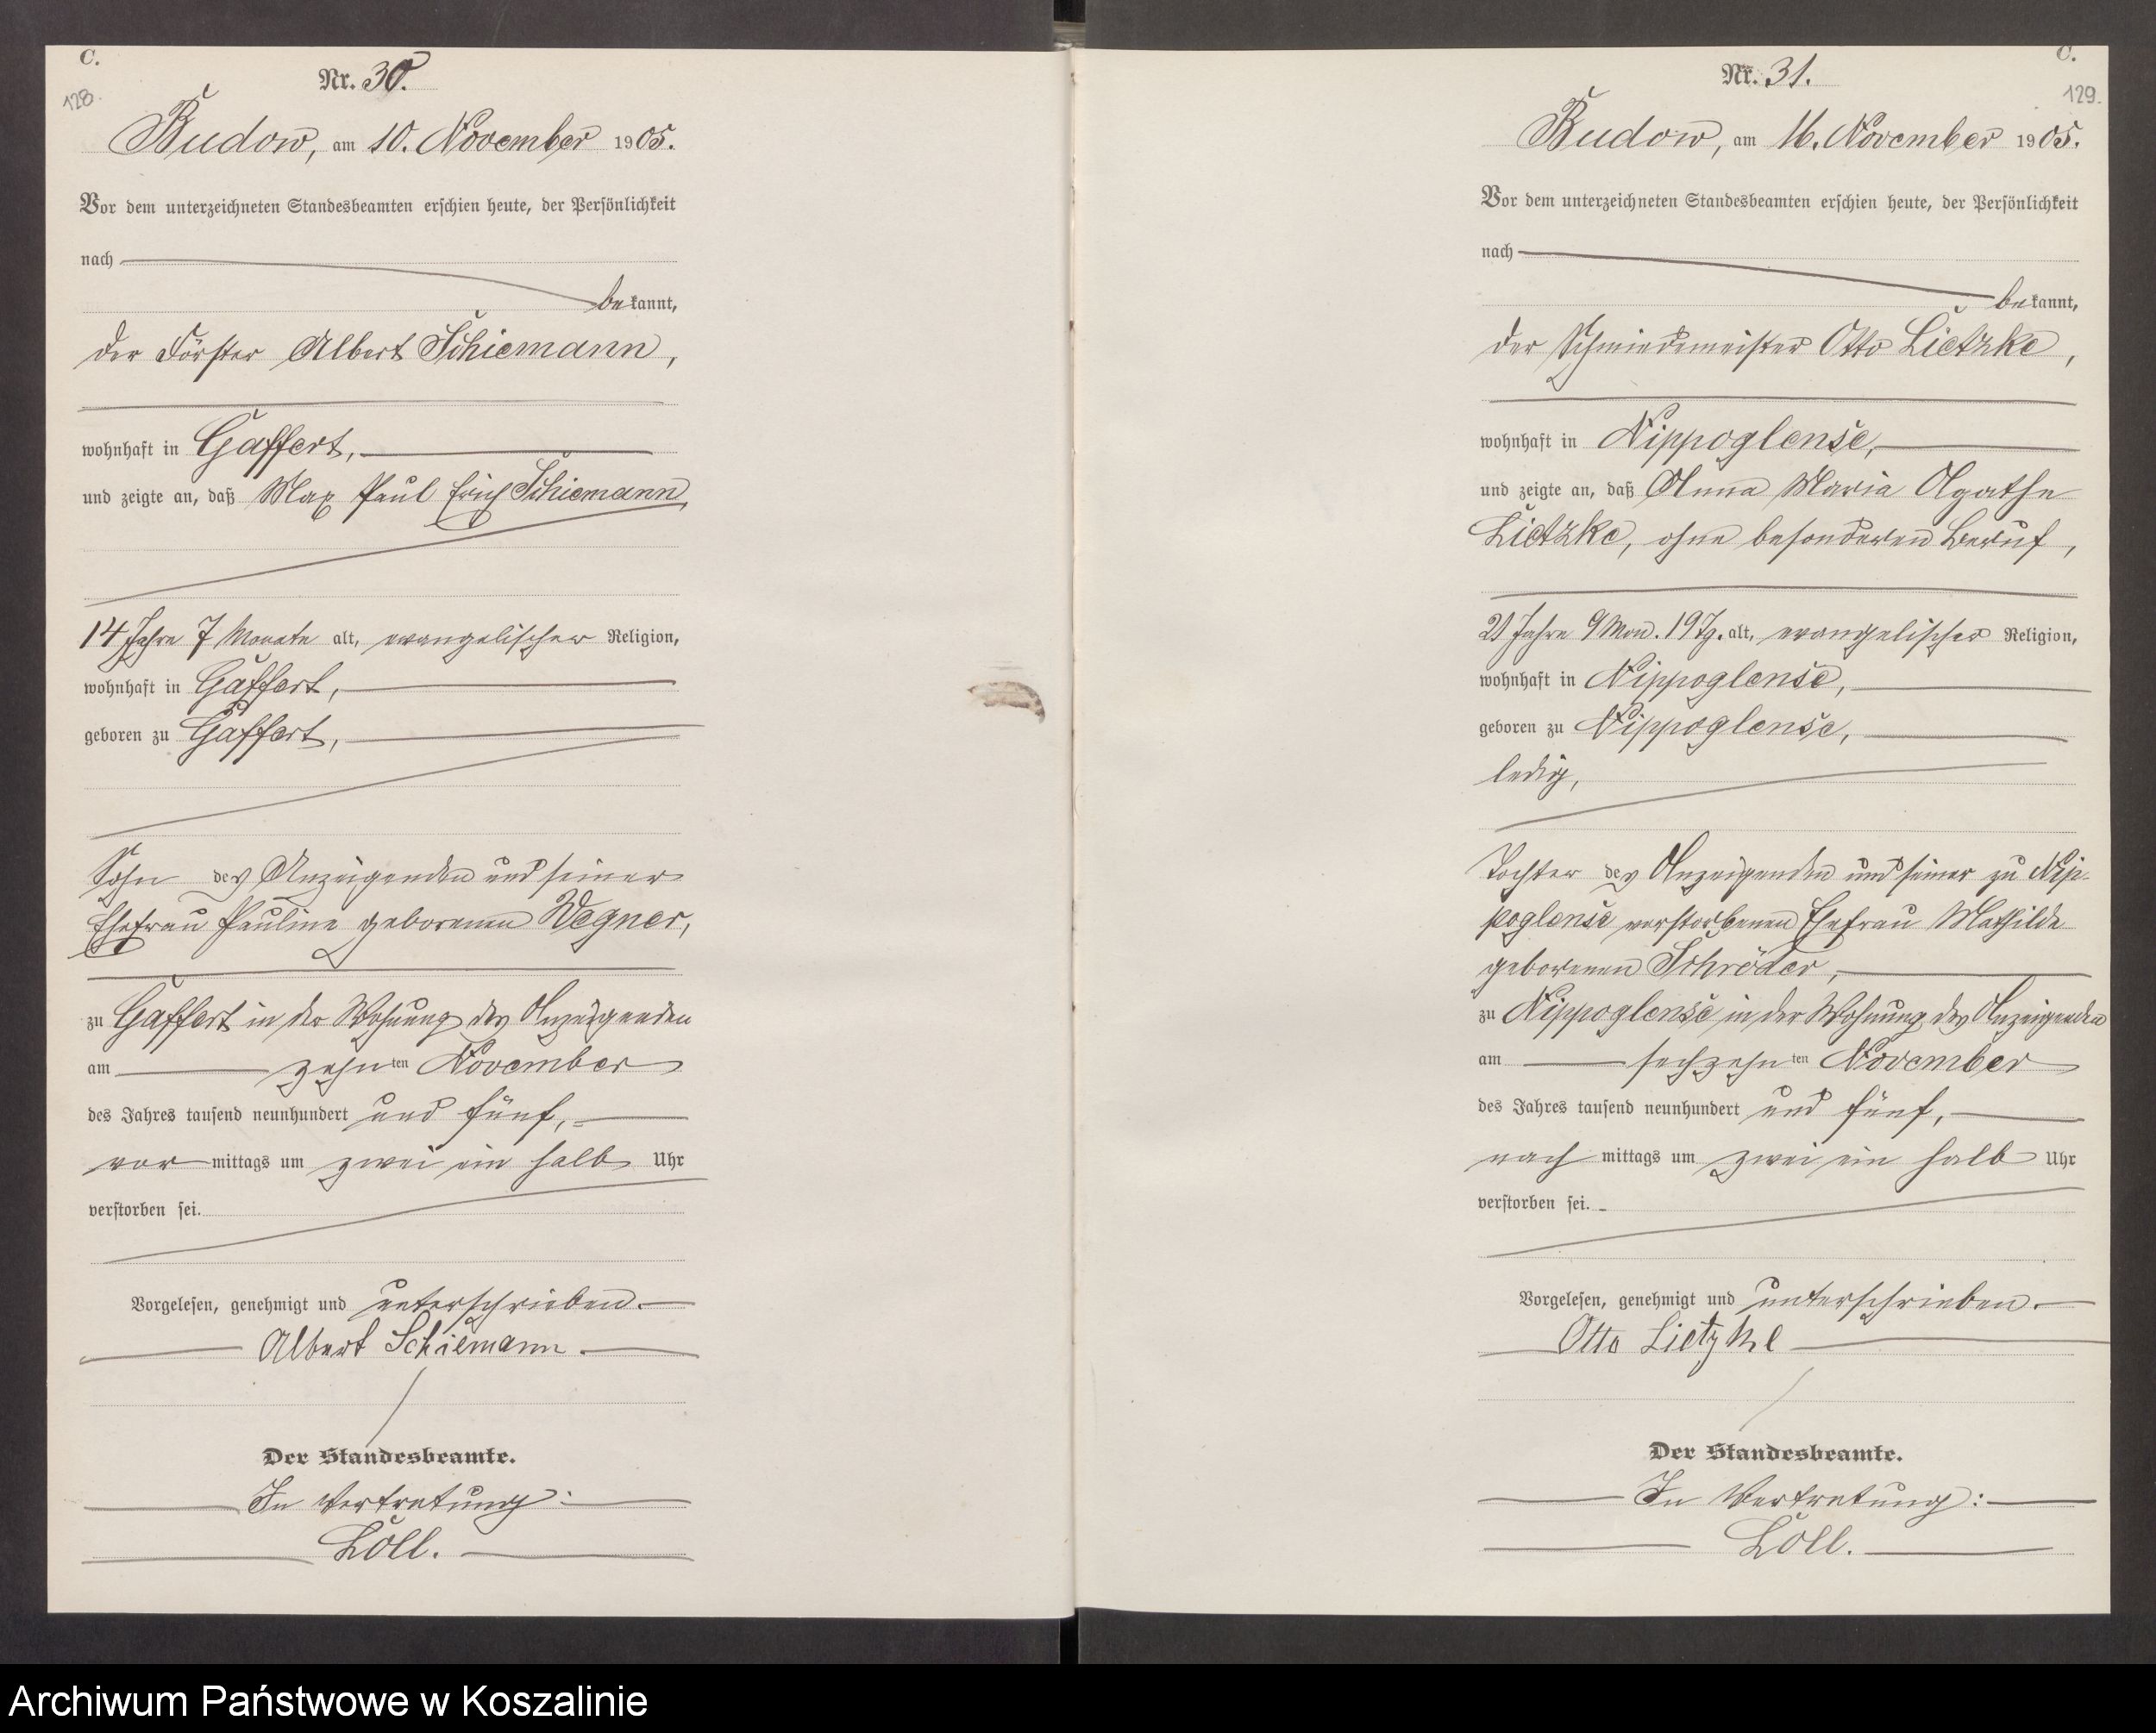 C.
128.
Nr. 30.
Budow, am 10. November 1905.
Vor dem unterzeichneten Standesbeamten erschien heute, der Persönlichkeit
nach
bekannt,
der Förster Albert Schiemann,
wohnhaft in Gaffert,
und zeigte an, daß Max Paul Erich Schiemann,
14 Jahre 7 Monate alt, evangelischer Religion,
wohnhaft in Gaffert,
geboren zu Gaffert,
Sohn des Anzeigenden und seiner
Ehefrau Pauline geborenen Wegner,
zu Gaffert in der Wohnung des Anzeigenden
am zehnten November
des Jahres tausend neunhundert und fünf,
vormittags um zwei ein halb Uhr
verstorben sei.
Vorgelesen, genehmigt und unterschrieben.
Albert Schiemann.
Der Standesbeamte.
In Vertretung:
Löll.
C.
129.
Nr. 31.
Budow, am 16. November 1905.
Vor dem unterzeichneten Standesbeamten erschien heute, der Persönlichkeit
nach
bekannt,
der Schmiedemeister Otto Lietzke,
wohnhaft in Nippoglense,
und zeigte an, daß Anna Maria Agathe
Lietzke, ohne besonderen Beruf,
21 Jahre 9 Mon. 19 Tg. alt, evangelischer Religion,
wohnhaft in Nippoglense,
geboren zu Nippoglense,
ledig,
Tochter des Anzeigenden und seiner zu Nip-
poglense verstorbenen Ehefrau Mathilde
geborenen Schröder,
zu Nippoglense in der Wohnung des Anzeigenden
am sechzehnten November
des Jahres tausend neunhundert und fünf,
nachmittags um zwei ein halb Uhr
verstorben sei.
Vorgelesen, genehmigt und unterschrieben.
Otto Lietzke
Der Standesbeamte.
In Vertretung:
Löll.
Archiwum Państwowe w Koszalinie